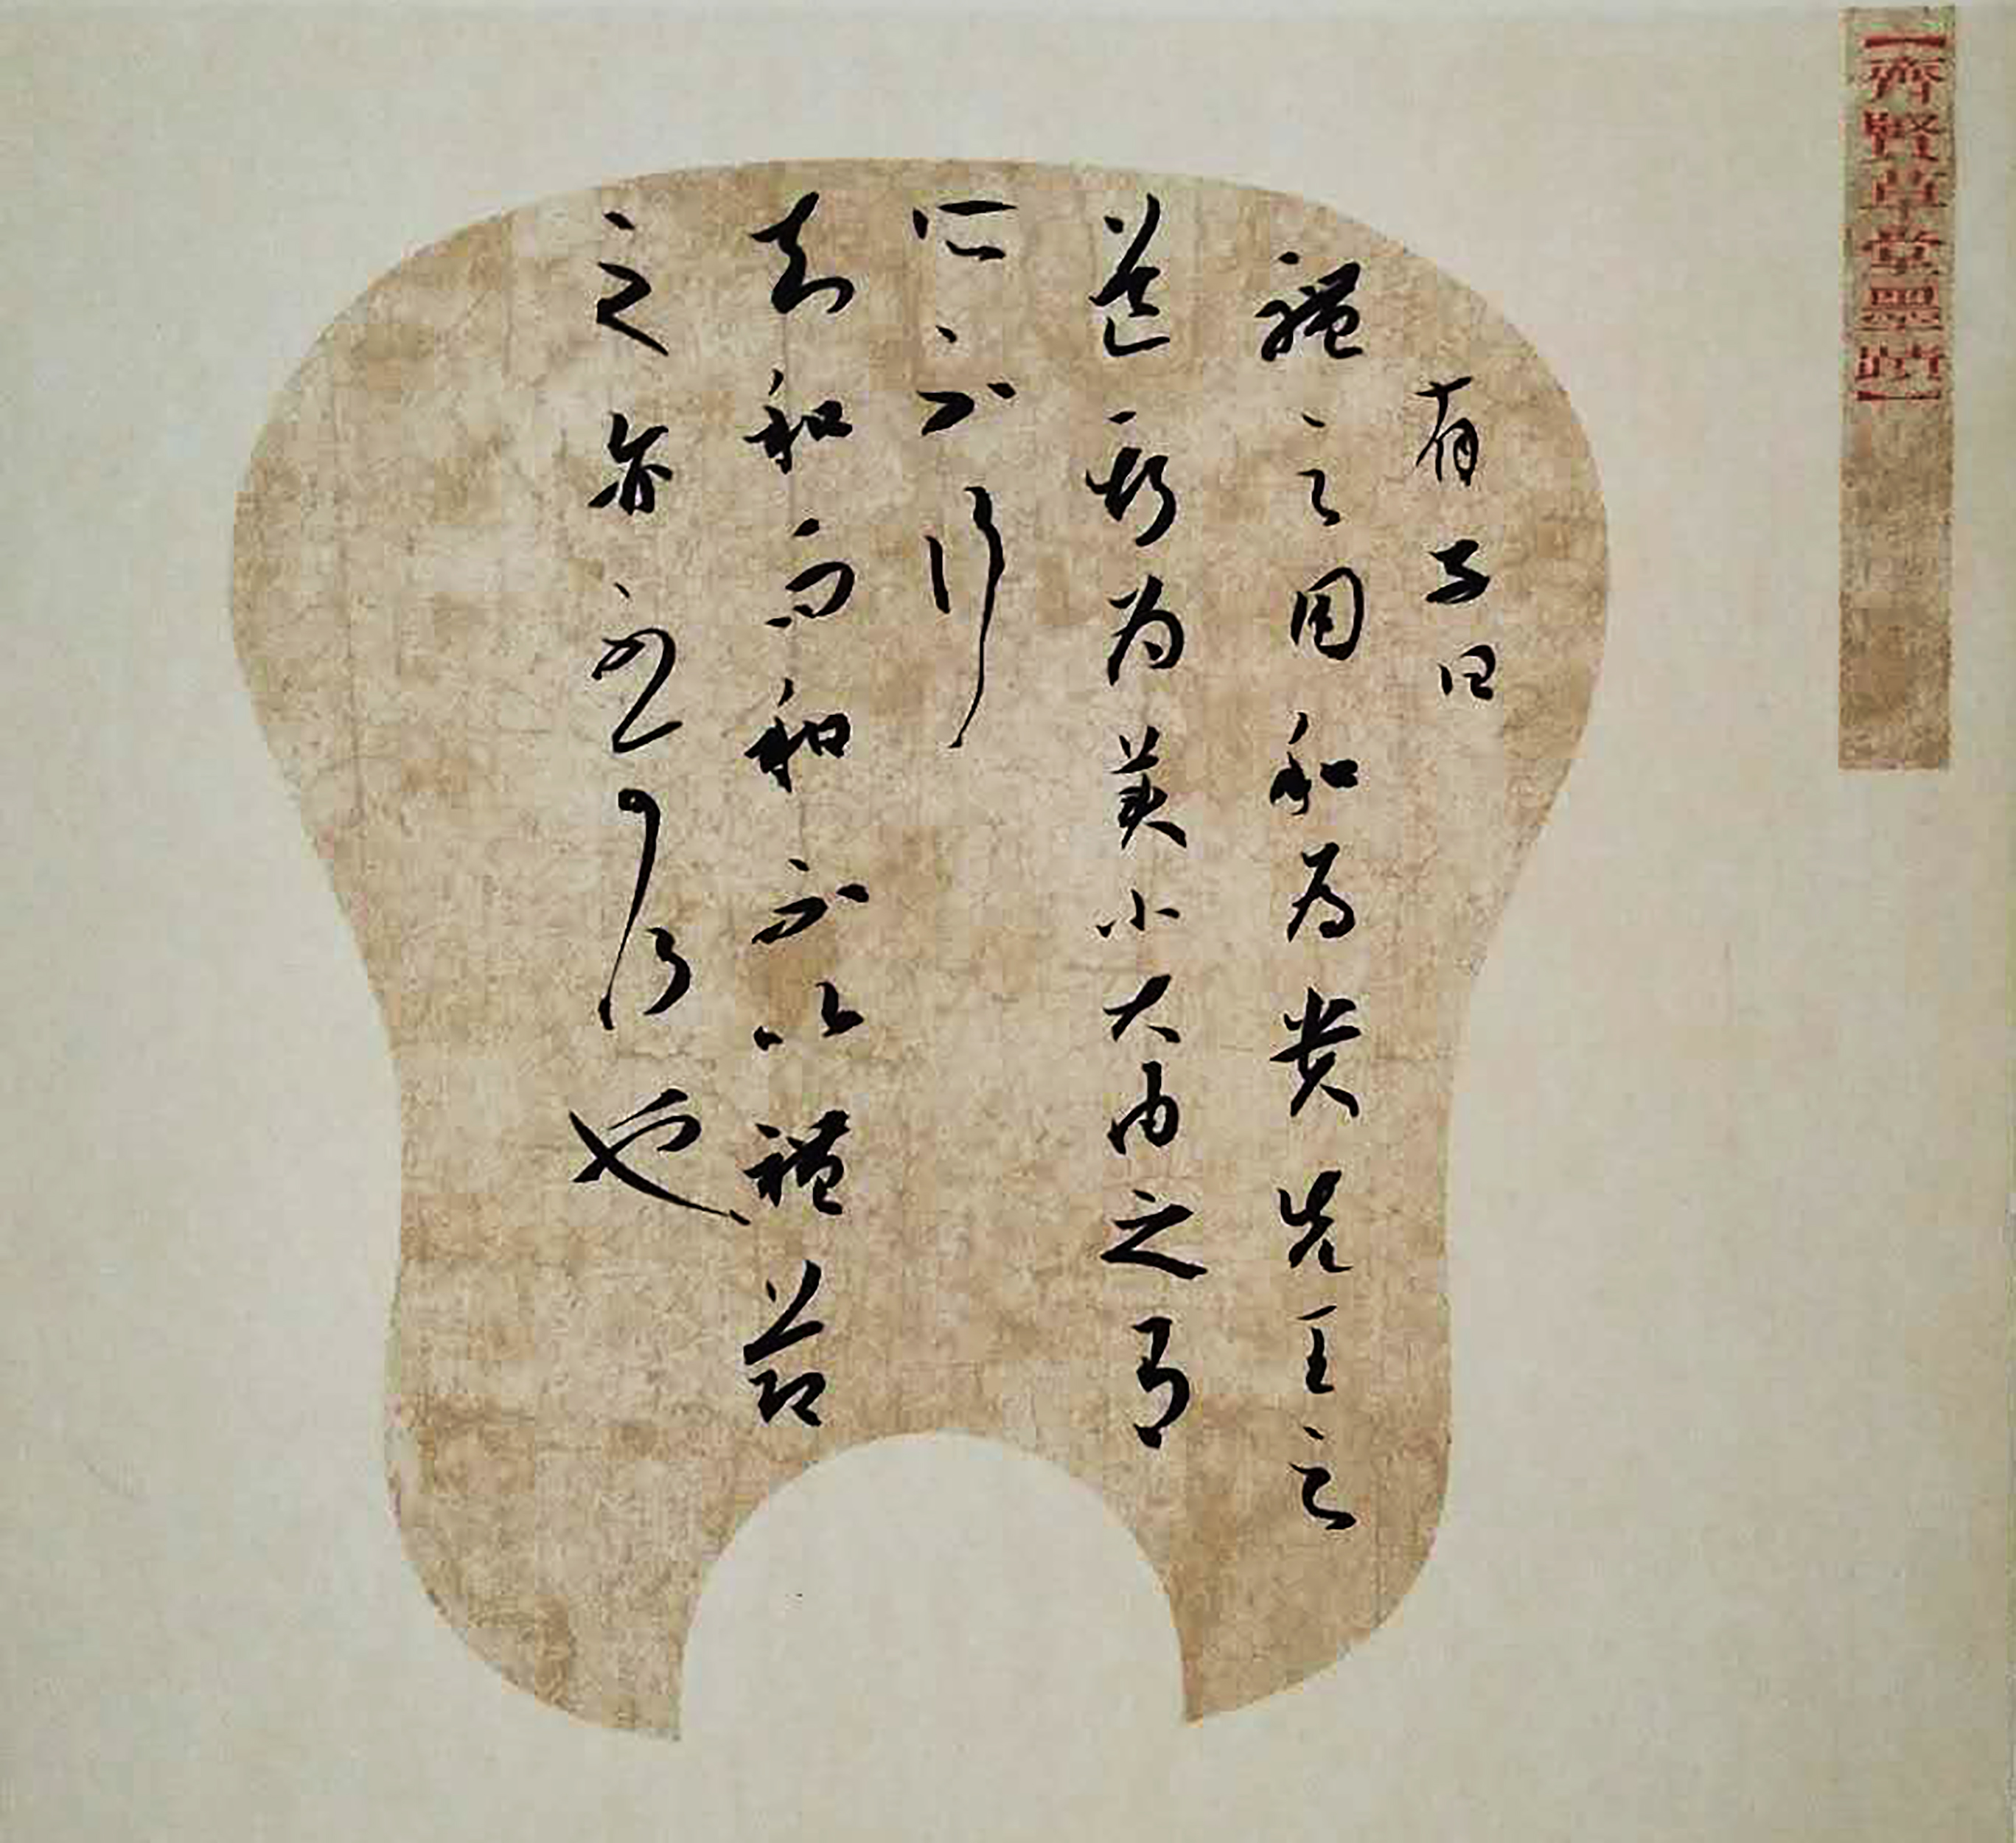 【齊賢草堂墨蹟】
有子曰
禮之用和為貴先王之
道斯為美小大由之有
所不行
知和而和不以禮節
之亦不可行也